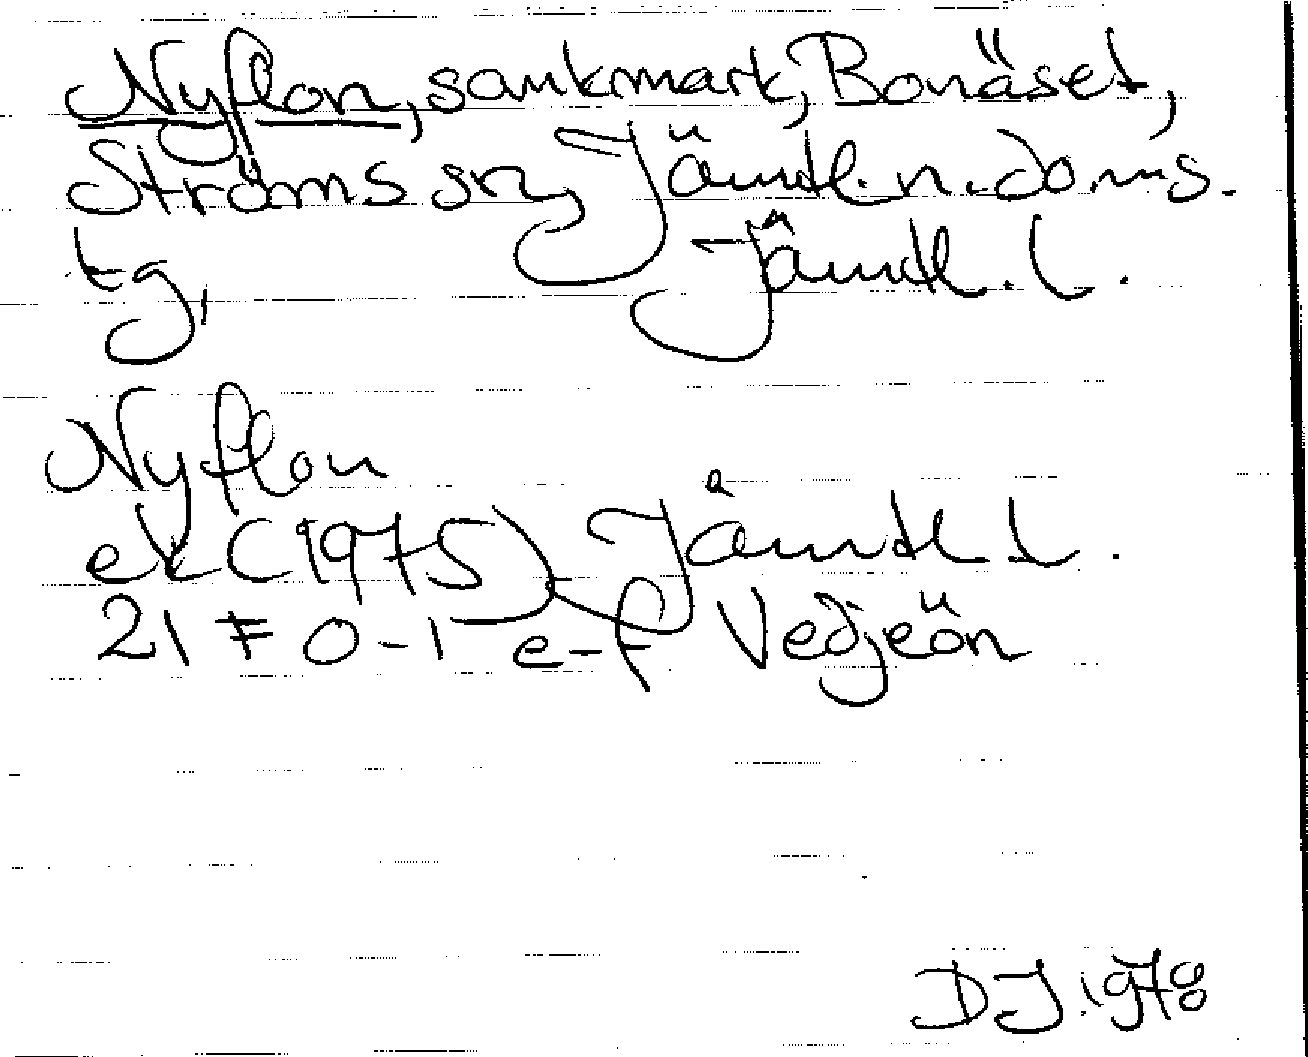 Nyflon, sankmark, Bonäset,
Ströms sn, Jämtl. n. doms.
tg, Jämtl. l.
Nyflon
ek (1975) Jämtl l.
21 F 0-1 e-f Vedjeön
DJ. 1978